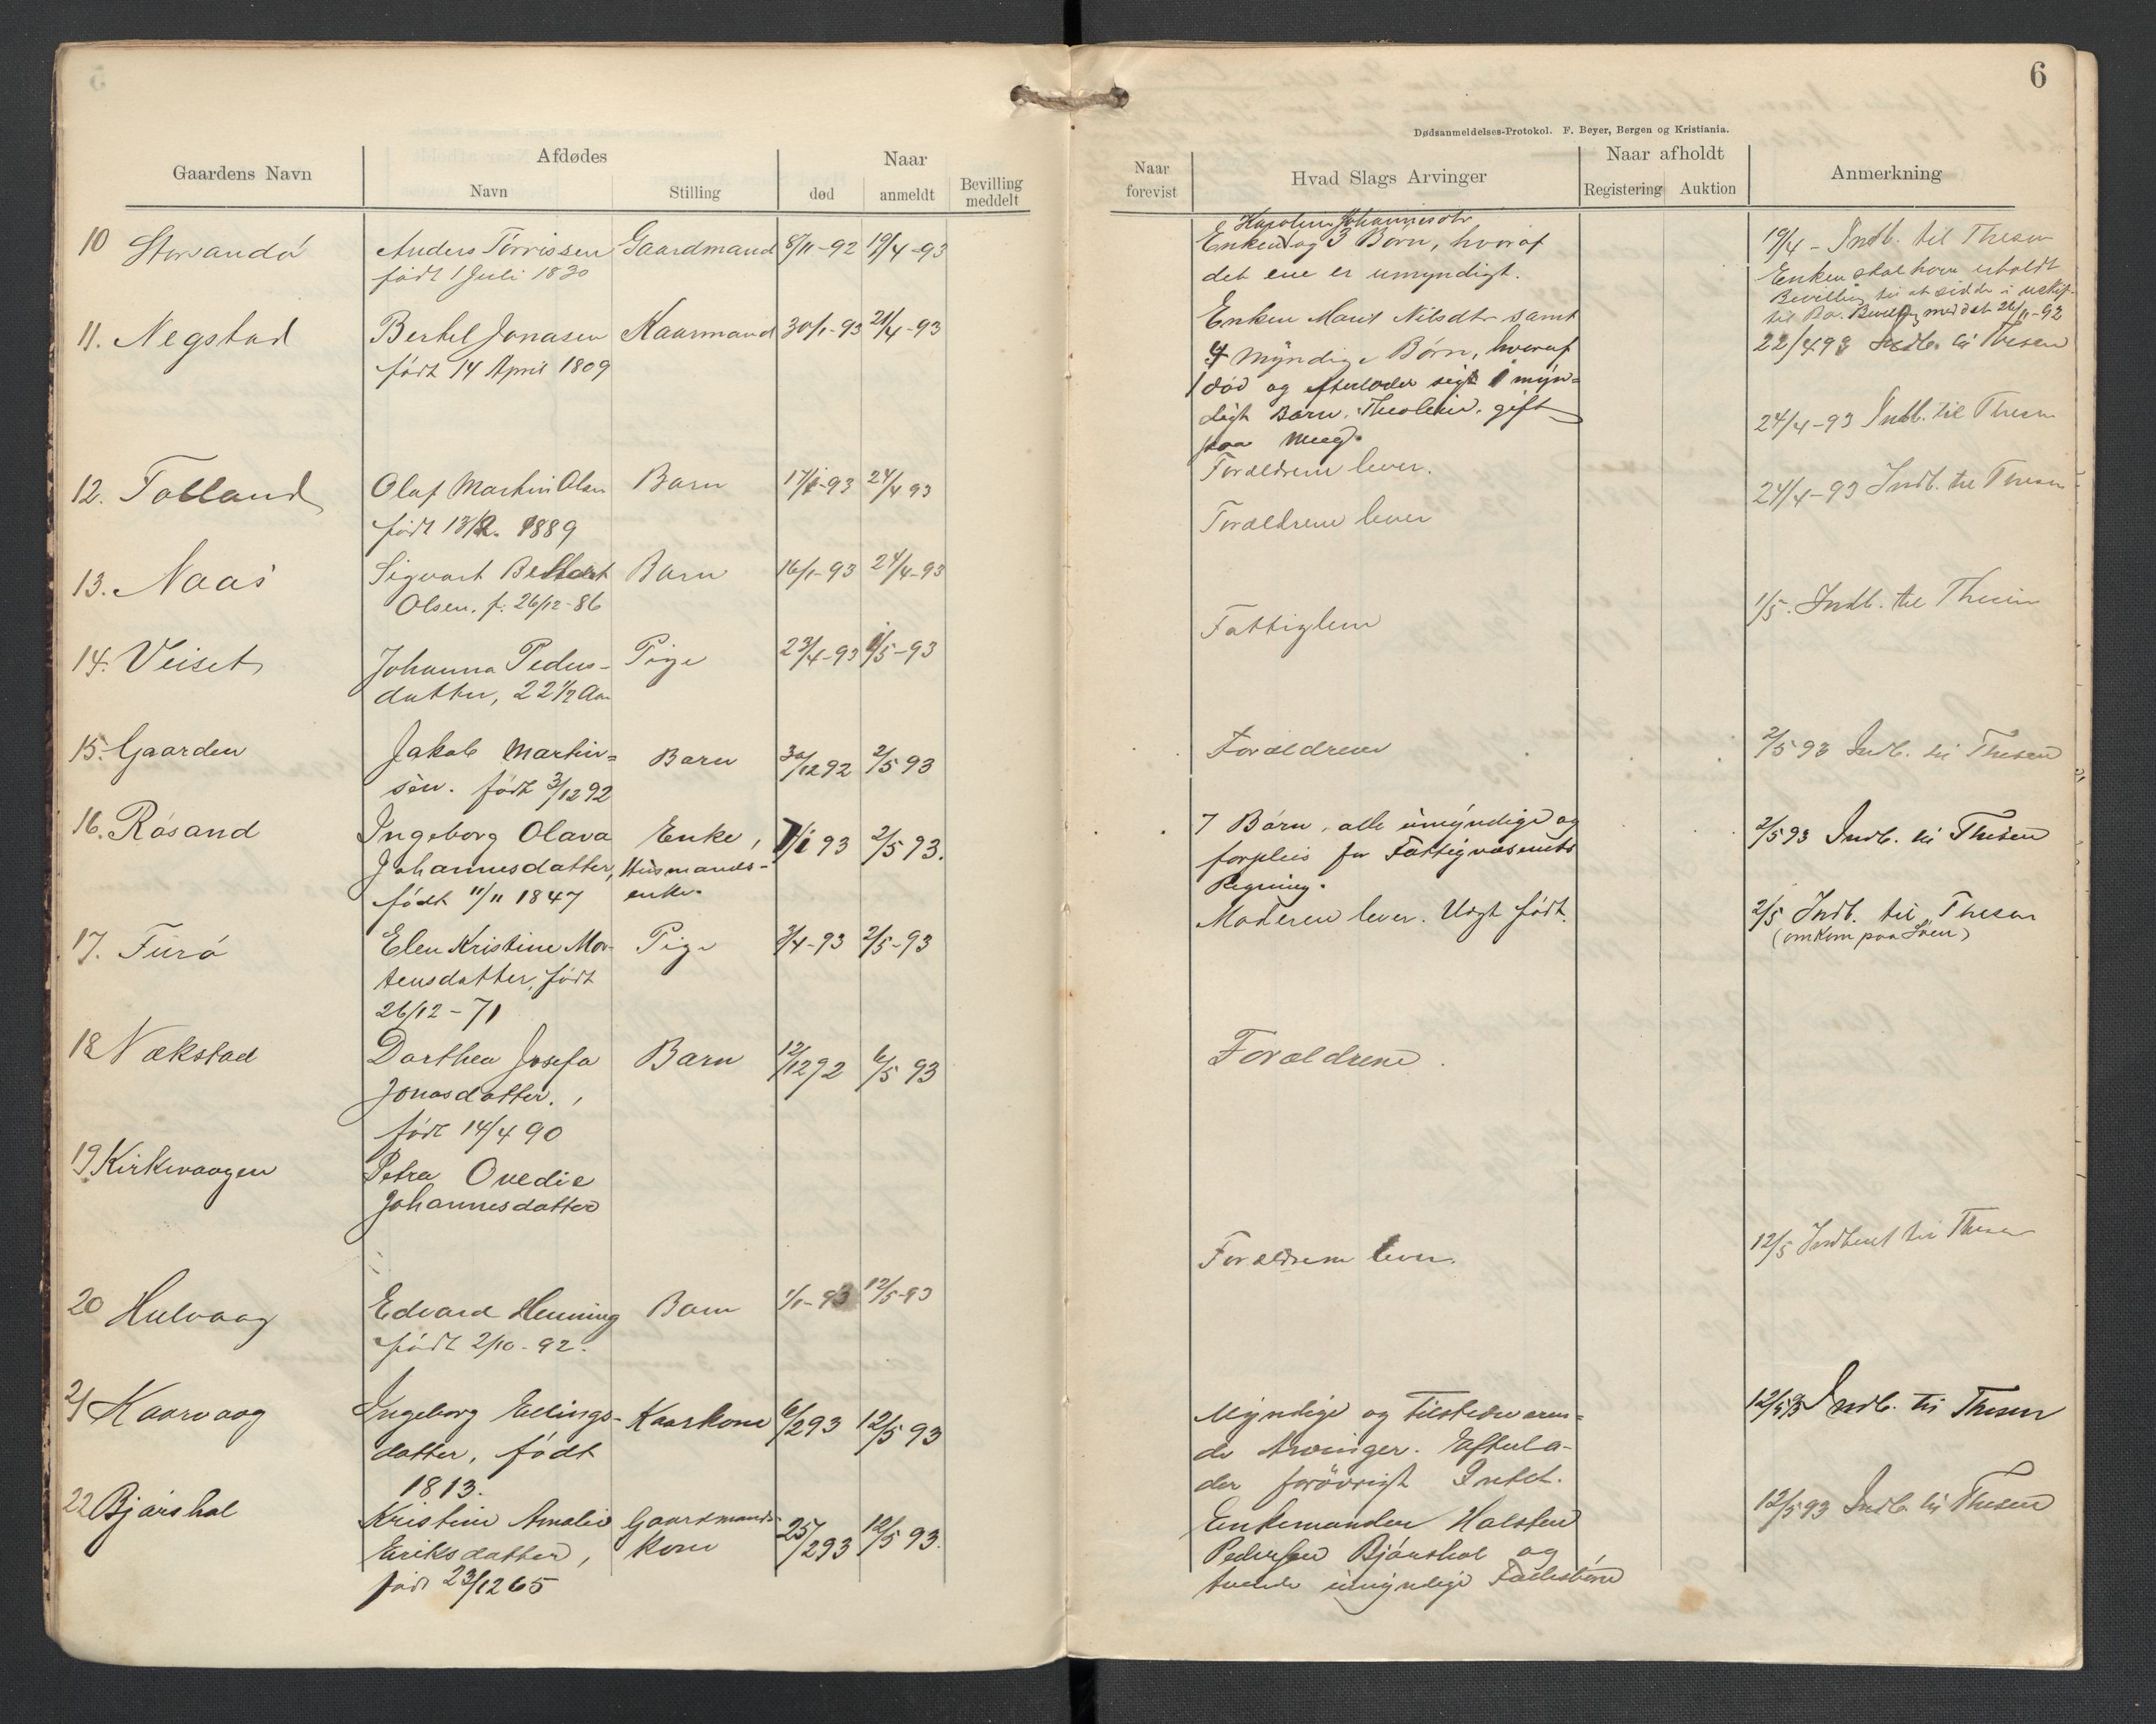 6
Dødsanmeldelses-Protokol. F. Beyer, Bergen og Kristiania.
Gaardens Navn
Afdødes
Navn
Stilling
Naar
død
anmeldt
Bevilling
meddelt
Naar
forevist
Hvad Slags Arvinger
Naar afholdt
Registering
Auktion
Anmerkning
10 Storsandö
Anders Törrissen
født 1 Juli 1830
Gaardmand
8/11-92
19/4-93
Karoline Johannesdtr
Enken og 3 Börn, hvoraf
det ene er umyndigt.
19/4 - Indb. til Thesen
Enken skal have erholdt
Bevilling til at sidde i uskif-
tet Bo. Bevillg meddelt 26/11-92
11. Negstad
Bertel Jonasen
født 14 April 1809
Kaarmand
30/1-93
21/4-93
Enken Marit Nilsdtr samt
4 myndige Børn, hvoraf
1 död og efterlader sig 1 myn=
digt Barn, gift
paa
22/4 93 Indb. til Thesen
24/4-93 Indb. til Thesen
12. Tolland
Olaf Martin Olsen
født 1889
Barn
17/1-93
24/4 93
Forældrene lever.
24/4-93 Indb. til Thesen
13. Naas
Sigvart
Olsen. f. 26/12-86
Barn
16/1-93
24/4-93
Forældrene lever
14. Veiset
Johanna Peders-
datter, 22 1/2 Aar
Pige
23/4-93
1/5-93
Fattiglem
1/5. Indb. til Thesen
15. Gaarden
Jakob Martin=
sen. født 3/12 92
Barn
30/12 92
2/5 93
Forældrene
2/5 93 Indb. til Thesen
16. Røsand
Ingeborg Olava
Johannesdatter,
født 11/11 1847
Enke,
Husmands-
enke.
7/1 93
2/5 93.
7 Börn, alle umyndige og
forpleies for Fattigvæsenets
Regning.
2/5 93 Indb. til Thesen
17. Furö
Elen Kristine Mor-
tensdatter, født
26/12-71
Pige
3/4-93
2/5-93
Moderen lever. Uegt født.
2/5 Indb. til Thesen
(omkom paa Söen)
18 Nækstad
Dorthea Josefa
Jonasdatter.,
født 14/4 90
Barn
12/12 92
6/5 93
Forældrene.
19 Kirkevaagen
Petra Ovedie
Johannesdatter
20 Hulvaag
Edvard Henning
født 2/10-92.
Barn
1/1-93
12/5-93
Forældrene lever.
12/5 Indberet til Thesen
21 Kaarvaag
Ingeborg Ellings-
datter, født
1813.
Kaarkone
6/2 93
12/5 93
Myndige og tilstedeværen=
de Arvinger. Efterla-
der forövrigt Intet.
12/5 93 Indb. til Thesen
22 Bjørshol
Kristine Amalie
Eriksdatter,
født 23/12 65
Gaardmands-
kone
25/2 93
12/5 93.
Enkemanden Halsten
Pedersen Bjørshol og
tvende umyndige Fællesbørn
12/5 93 Indb. til Thesen